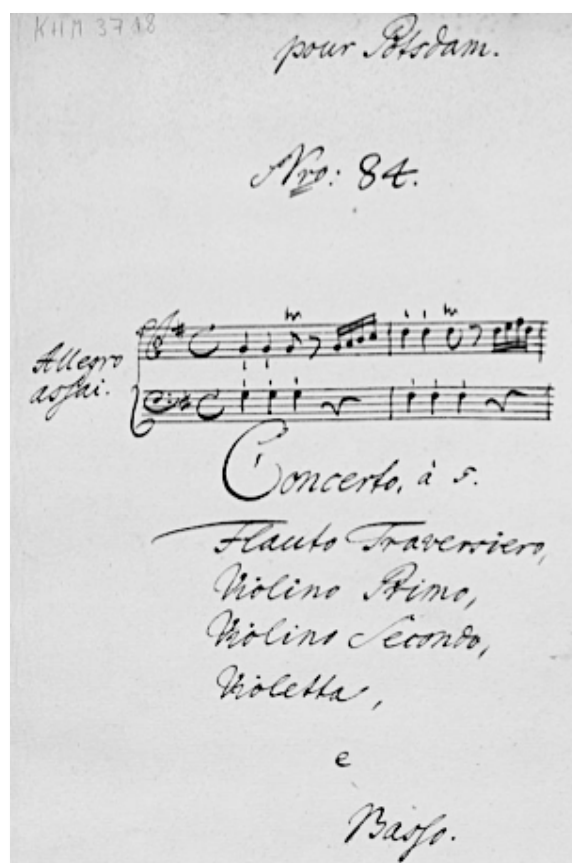 KHM 3718
pour Potsdam.
Nro: 84.
Allegro
assai.
Concerto, à 5.
Flauto Traversiero,
Violino Primo,
Violino Secondo,
Violetta,
e
Basso.